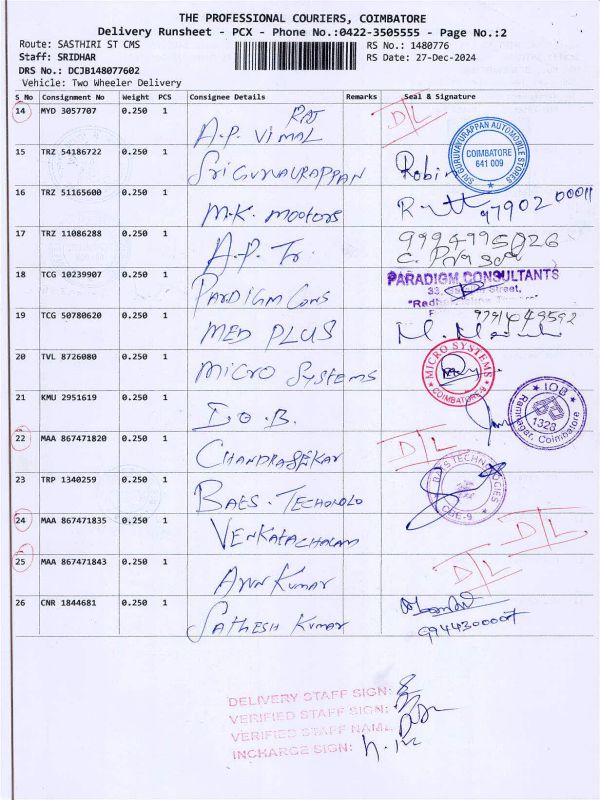 THE PROFESSIONAL COURIERS, COIMBATORE
Delivery Runsheet - PCX - Phone No.:0422-3505555 - Page No.:2
Route: SASTHIRI ST CMS RS No.: 1480776
Staff: SRIDHAR RS Date: 27-Dec-2024
DRS No.: DCJB148077602
Vehicle: Two Wheeler Delivery
S No Consignment No Weight PCS Consignee Details Remarks Seal & Signature
14 MYD 3057707 0.250 1 A.P. VIMAL RAJ D/L
15 TRZ 54186722 0.250 1 SRI GURUVAURAPPAN Robin
SRI GURUVAYURAPPAN AUTOMOBILE STORES
COIMBATORE
641 009
16 TRZ 51165600 0.250 1 M.K. mootors 97902 00011
17 TRZ 11086288 0.250 1 A.P. Tr. 9994995826
18 TCG 10239907 0.250 1 PARDIGM CONS
PARADIGM CONSULTANTS
Street,
19 TCG 50780620 0.250 1 MED PLUS 9791049592
20 TVL 8726080 0.250 1 MICRO SYSTEMS
MICRO SYSTEMS
COIMBATORE-9
21 KMU 2951619 0.250 1 I.O.B.
IOB
1328
Ramnagar, Coimbatore
22 MAA 867471820 0.250 1 CHANDRASEKAR D/L
23 TRP 1340259 0.250 1 BAES. TECHONOLO
BAES TECHNOLOGIES
CBE-9
24 MAA 867471835 0.250 1 VENKATACHALAM D/L
25 MAA 867471843 0.250 1 ARUN KUMAR D/L
26 CNR 1844681 0.250 1 SATHESH KUMAR
9944300007
DELIVERY STAFF SIGN:
VERIFIED STAFF SIGN:
VERIFIED STAFF NAME
INCHARGE SIGN: